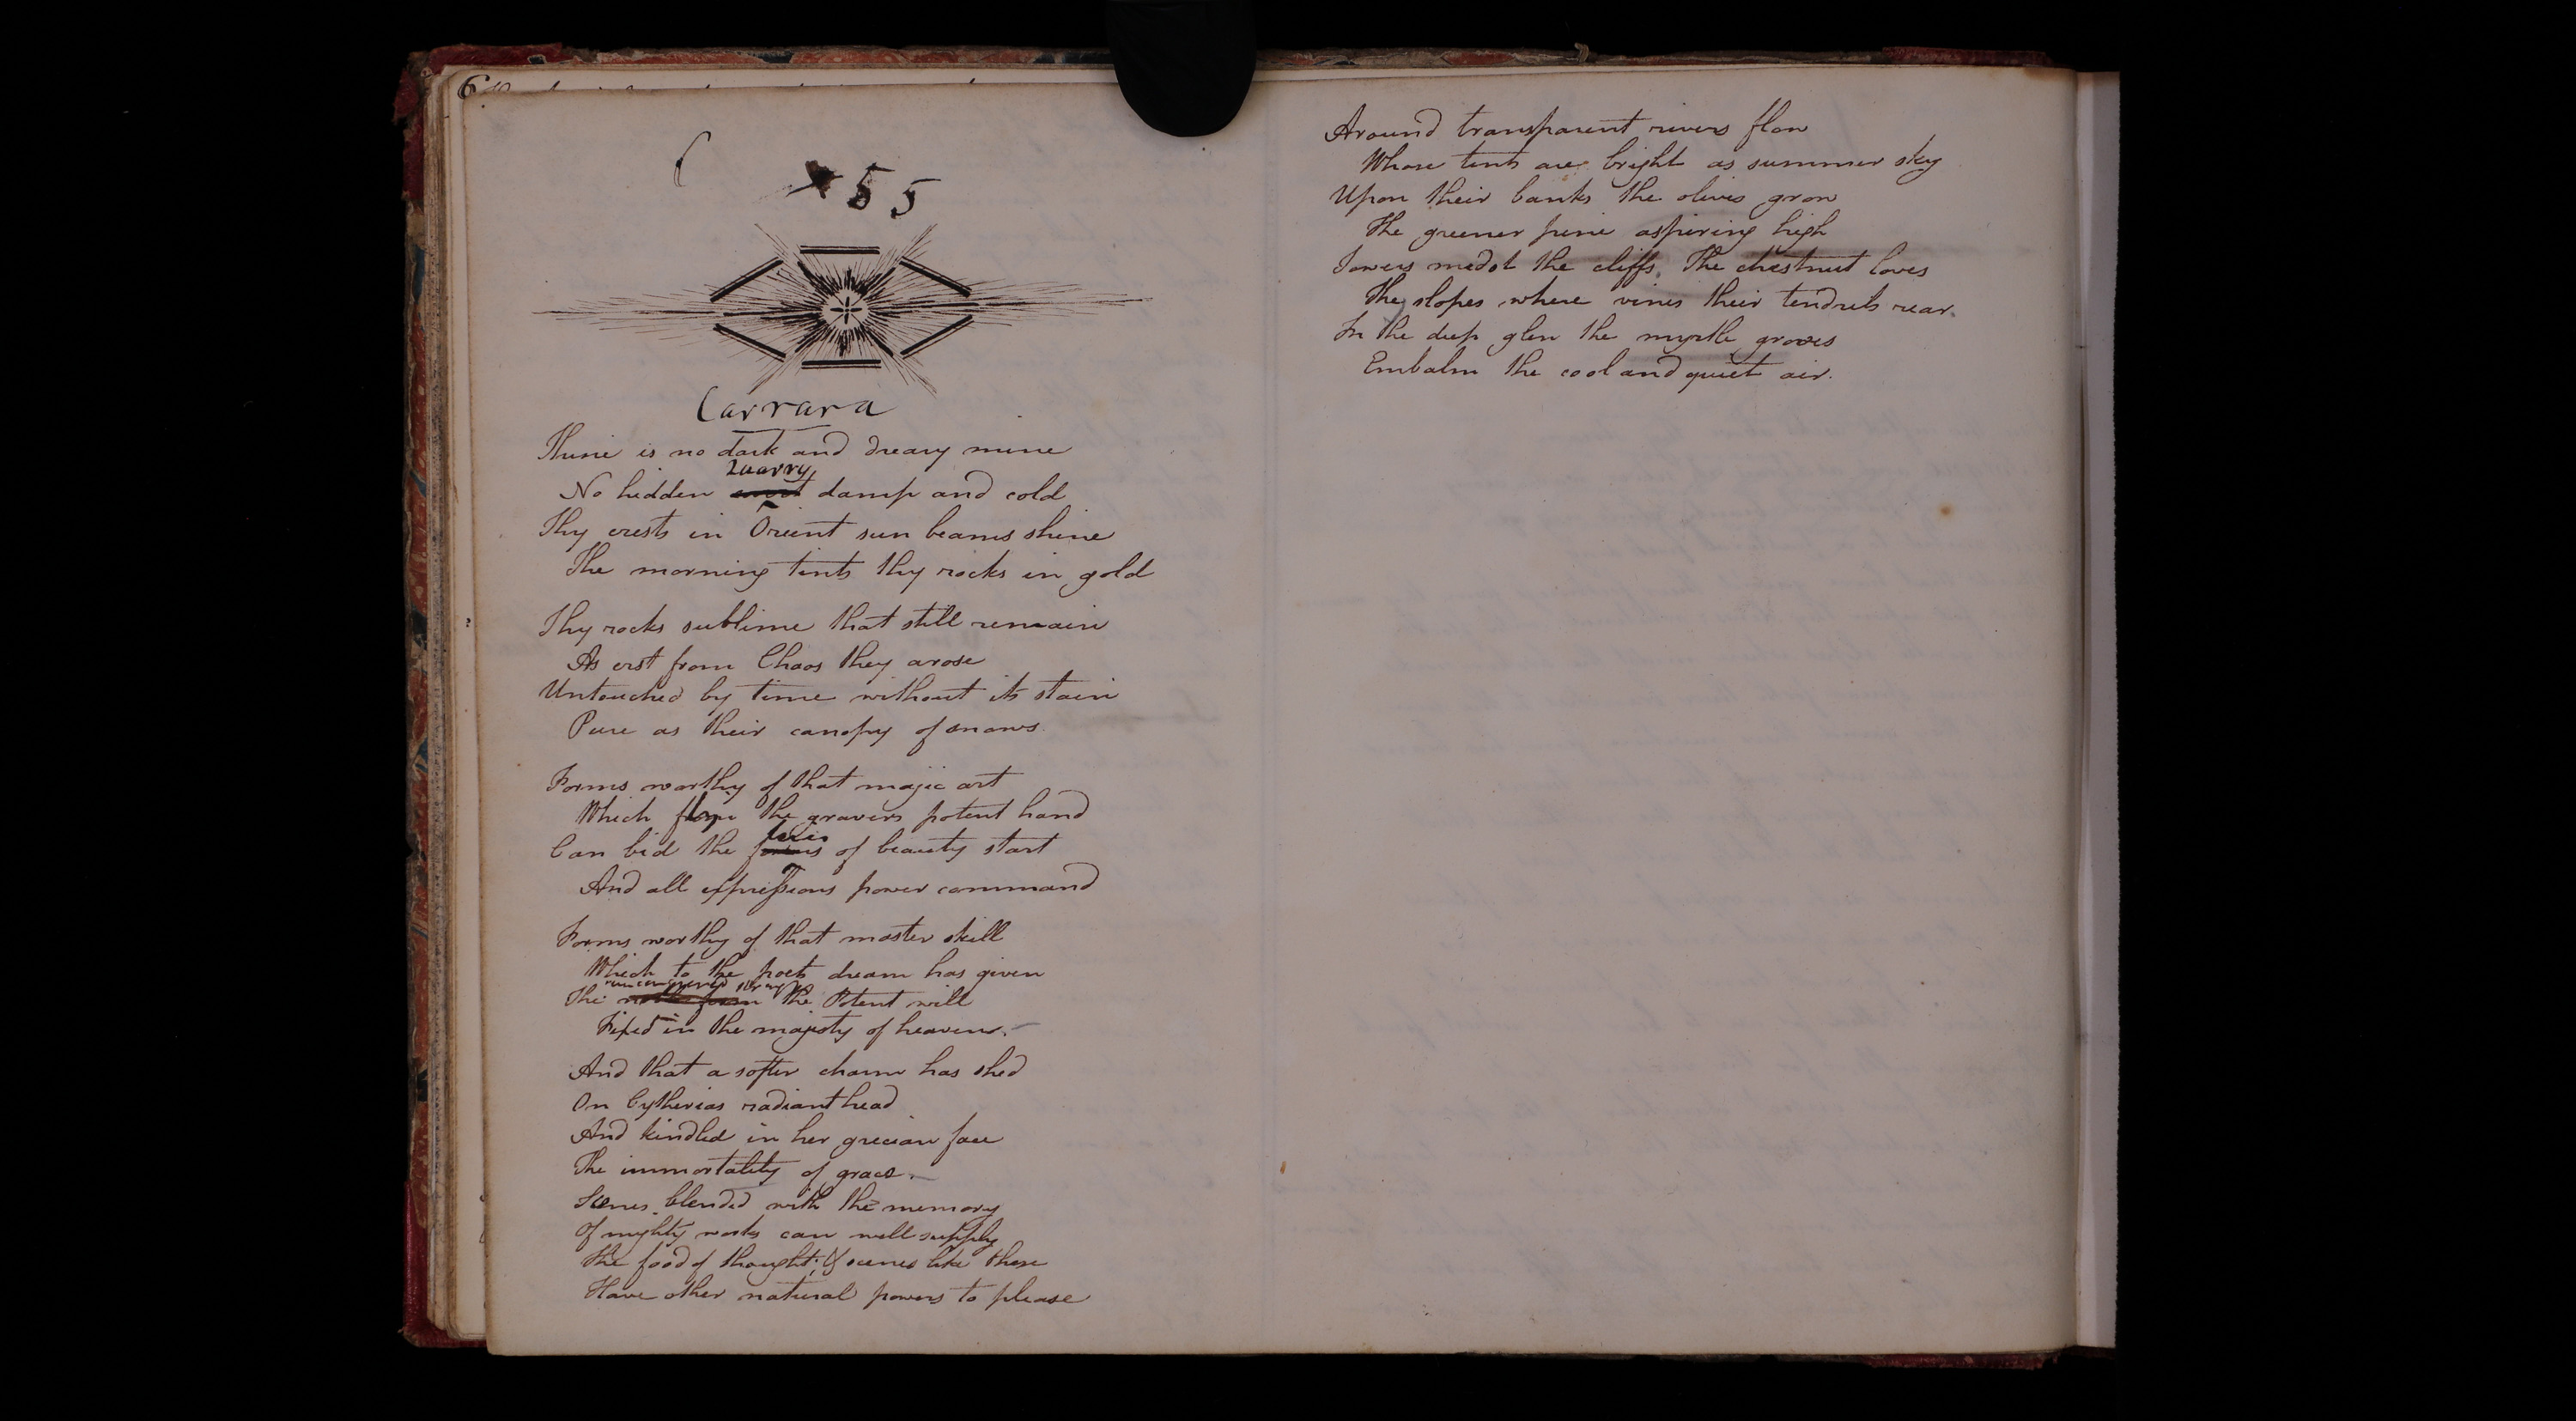 6
55
Carrara
Thine is no dark and dreary mine
Quarry
No hidden damp and cold
Thy crests in Orient sun beams shine
The morning tints thy rocks in gold
Thy rocks sublime that still remain
As erst from Chaos they arose
Untouched by time without its stain
Pure as their canopy of snows.
Forms worthy of that magic art
Which from the gravers potent hand
Can bid the forms of beauty start
And all expressions power command
Forms worthy of that master skill
Which to the poets dream has given
unconquered
The noble form the Potent will
Fixed in the majesty of heaven.
And that a softer charm has shed
On Cytherias radiant head
And kindled in her grecian face
The immortality of grace.
Scenes blended with the memory
Of mighty works can well supply
The food of thought; & scenes like these
Have other natural powers to please
Around transparent rivers flow
Whose tints are bright as summer sky
Upon their banks the olives grow
The greener pine aspiring high
Towers midst the cliffs. The chestnut loves
The slopes where vines their tendrils rear.
In the deep glen the myrtle groves
Embalm the cool and quiet air.